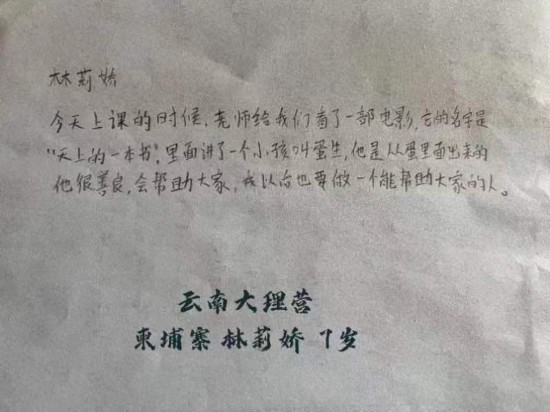 林莉娇
今天上课的时候，老师给我们看了一部电影，它的名字是
“天上的一本书”，里面讲了一个小孩叫蛋生，他是从蛋里面出来的
他很善良，会帮助大家，我以后也要做一个能帮助大家的人。
云南大理营
柬埔寨 林莉娇 7岁